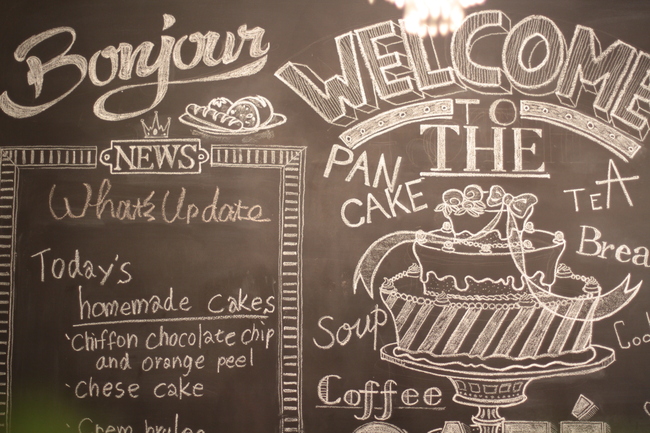 Bonjour
NEWS
What's Update
Today's
homemade cakes
Chiffon chocolate chip
and orange peel
Chese cake
Crem brulee
WELCOME
TO
THE
PAN
CAKE
TEA
Brea
Soup
Coffee